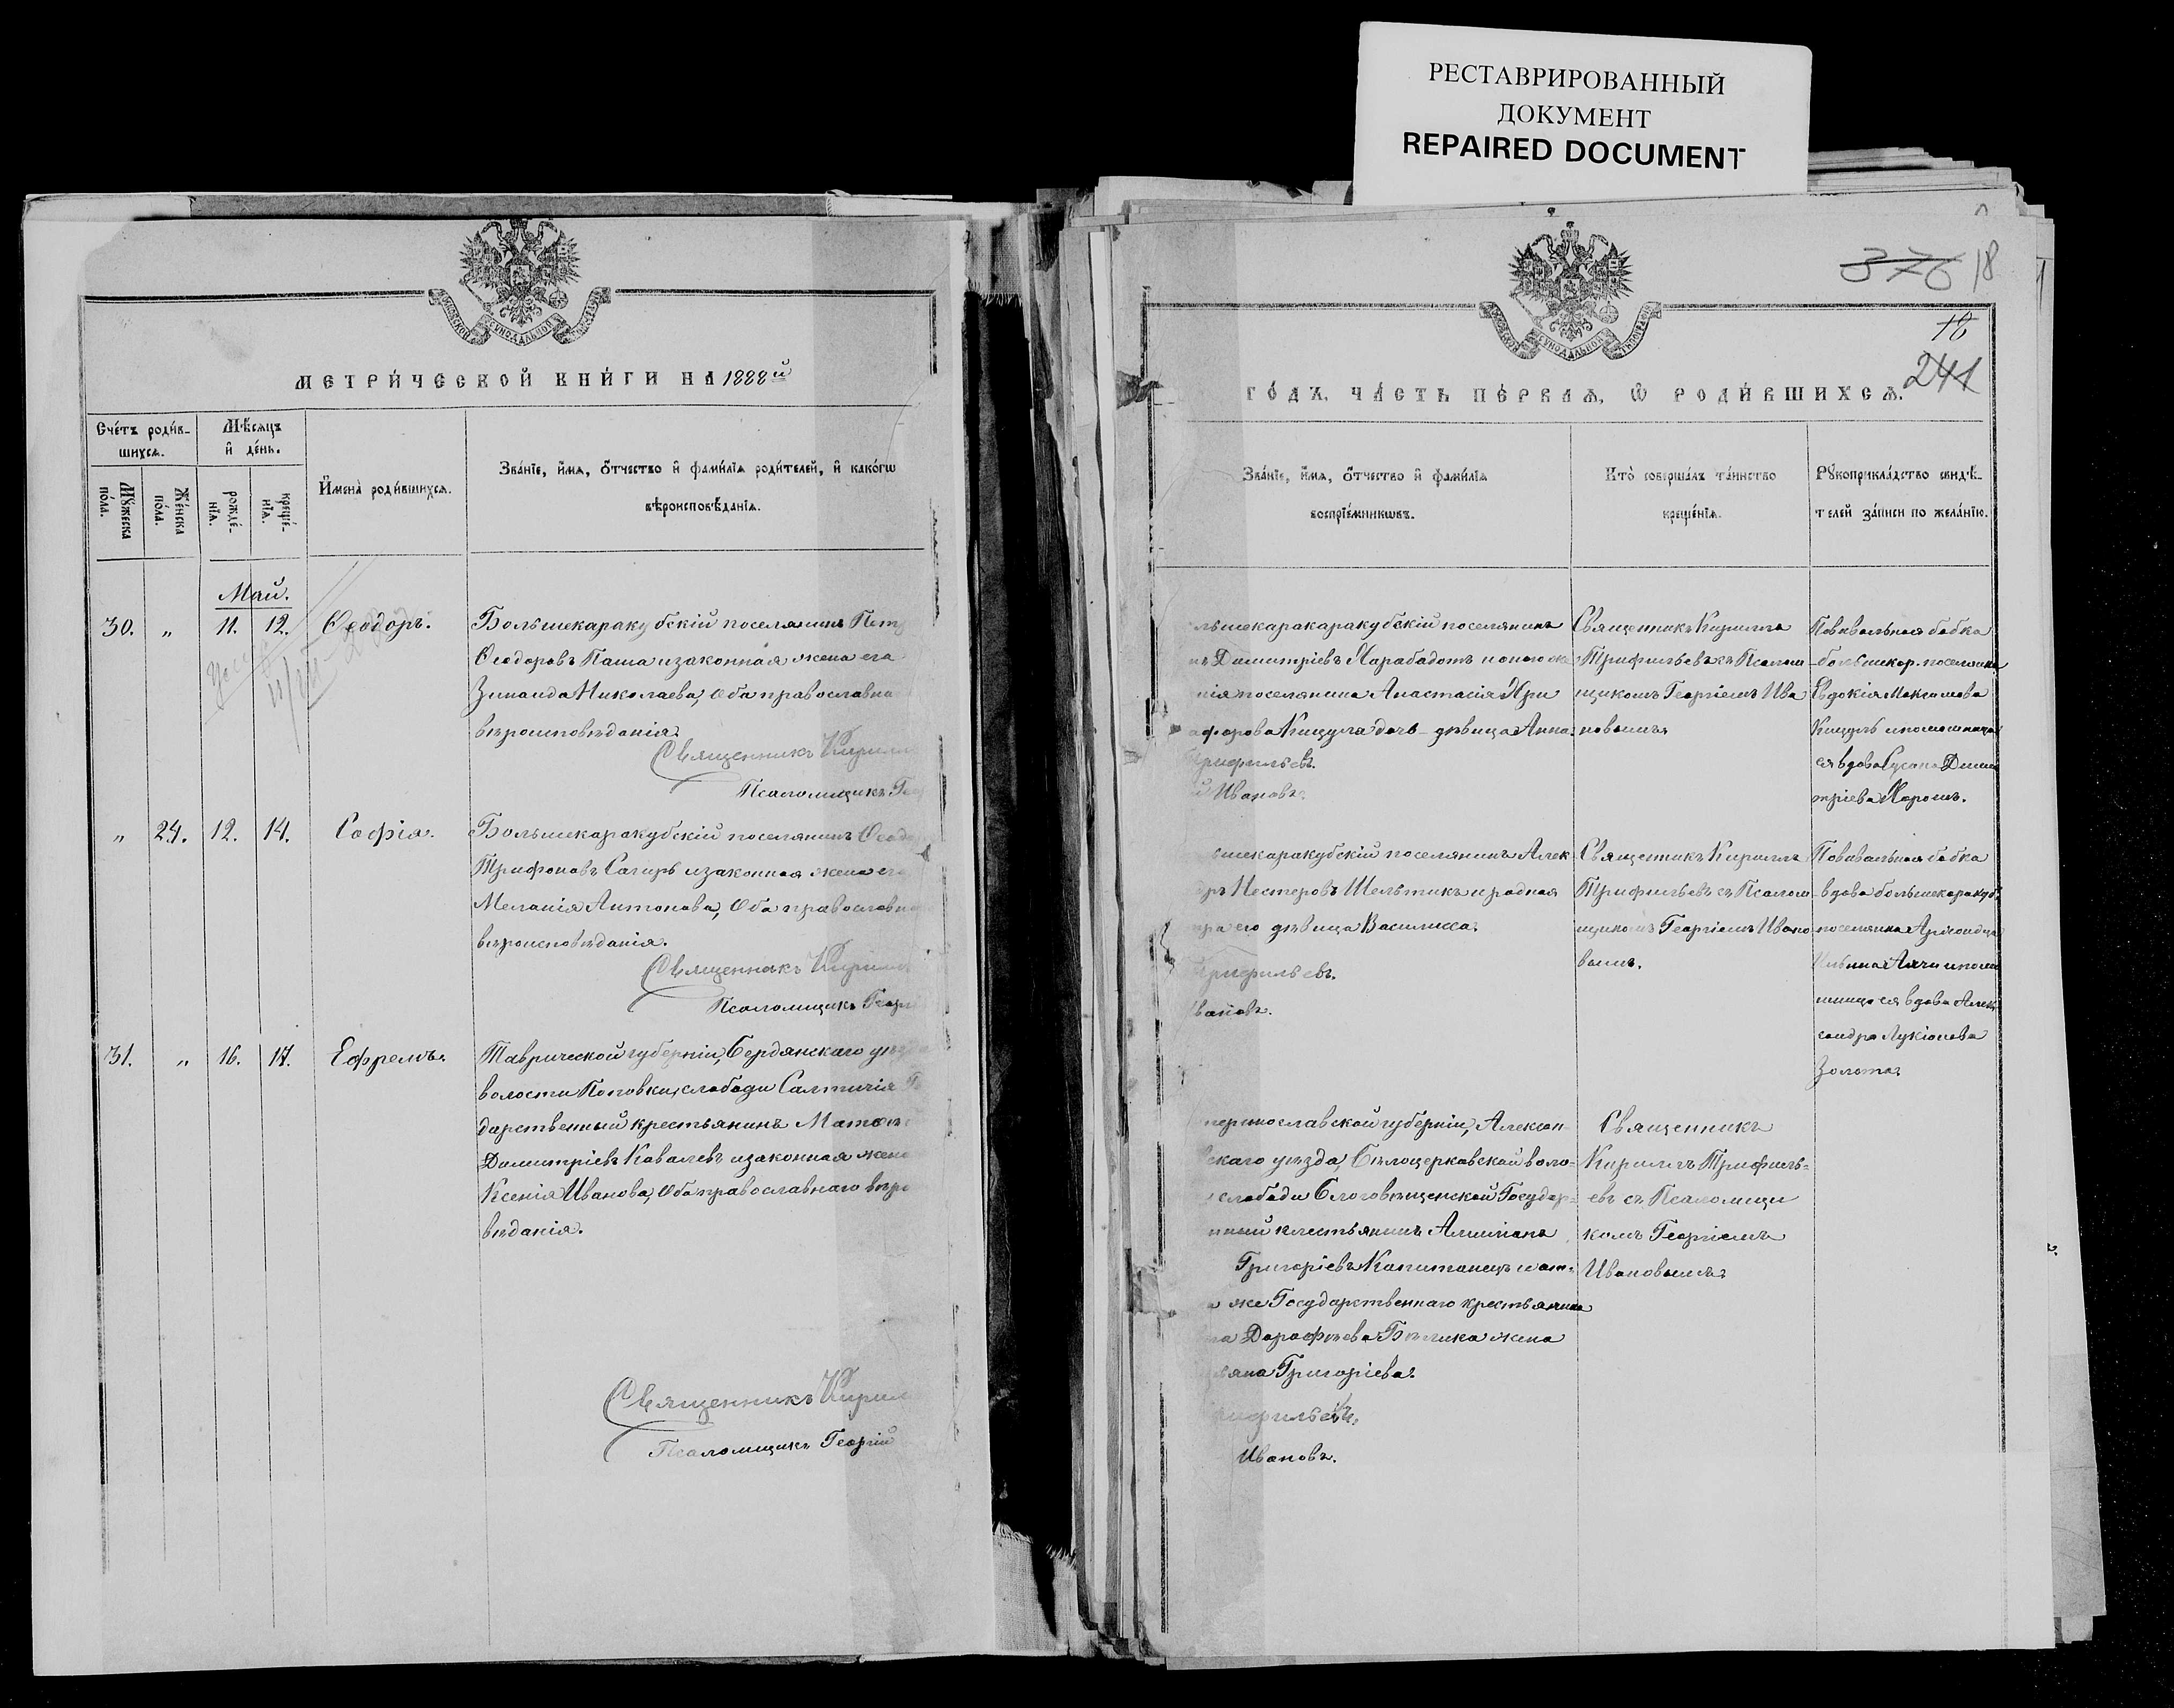 РЕСТАВРИРОВАННЫЙ
ДОКУМЕНТ
REPAIRED DOCUMENT
МЕТРИ́ЧЕСКОЙ КНИ́ГИ НА 1888й
Сче́тъ роди́в-
шихсѧ.
Мѣ́сѧцъ
и҆ де́нь.
Мꙋ́жеска
по́ла.
Же́нска
по́ла.
рожде́-
нїѧ.
креще́-
нїѧ.
И҆мена̀ роди́вшихсѧ.
Зва́нїе, и҆́мѧ, ѻ҆́тчество и҆ фами́лїѧ роди́телей, и҆ како́гѡ
вѣроисповѣ́данїѧ.
Май.
30. „ 11. 12. Ѳеодоръ.
Большекаракубскій поселянинъ Петр
Ѳеодоровъ Паша и законная жена его
Зинаида Николаева, оба православна
вѣроисповѣданія.
Священникъ Кирилл
Псаломщикъ Геор
„ 24. 12. 14. Софія.
Большекаракубскій поселянинъ Ѳеодо
Трифоновъ Сагиръ и законная жена его
Меланія Антонова, оба православна
вѣроисповѣданія.
Священникъ Кирилл
Псаломщикъ Георг
31. „ 16. 17. Ефремъ.
Таврической губерніи, Бердянскаго уѣзда
волости Поповки, слободи Салтичія Го
дарственный крестьянинъ Матѳ
Димитріевъ Ковалевъ и законная жена
Ксенія Иванова, оба православнаго вѣро
вѣданія.
Священникъ Кирил
Псаломщикъ Георгій
376 18
18
241
ГО́ДЪ, ЧА́СТЬ ПЕ́РВАѦ, Ѡ РОДИ́ВШИХСѦ.
Зва́нїе, и҆́мѧ, ѻ҆́тчество и҆ фами́лїѧ
воспрїе́мникѡвъ.
Кто̀ соверша́лъ та́инство
креще́нїѧ.
Рꙋкоприкла́дство свидѣ́-
телей за́писи по жела́нїю.
льшекаракаракубскій поселянинъ
нъ Димитріевъ Харабадотъ и оною же
нія поселянина Анастасія Хри
афорова Кицула дочь-дѣвица Анна.
Трифильевъ.
й Ивановъ.
Священникъ Кириллъ
Трифильевъ съ Псалом
щикомъ Георгіемъ Ива
новымъ.
Повивальная бабка
большекар. поселянка
Евдокія Максимова
Кицулъ и помошница
ея вдова Сусана Дими
тріева Хорошъ.
ьшекаракубскій поселянинъ Алек
ръ Нестеровъ Шельтикъ и родная
тра его дѣвица Василисса.
Трифильевъ.
Ивановъ.
Священникъ Кириллъ
Трифильевъ съ Псалом
щикомъ Георгіемъ Ивано
вымъ.
Повивальная бабка
вдова большекаракуб.
поселянка
и помо
шница ея вдова Алек
сандра Лукіонова
Золота.
теринославской губерніи, Алексан
вскаго уѣзда, Бѣлоцерковской воло-
слободи Благовѣщенской Государ-
нный клестьянинъ
Григоріевъ Капитанецъ и
же Государственнаго крестьянина
на Дорофѣева Бѣлика жена
ьяна Григоріева.
Трифильевъ.
Ивановъ.
Священникъ
Кириллъ Трифиль-
евъ съ Псаломщи
комъ Георгіемъ
Ивановымъ.